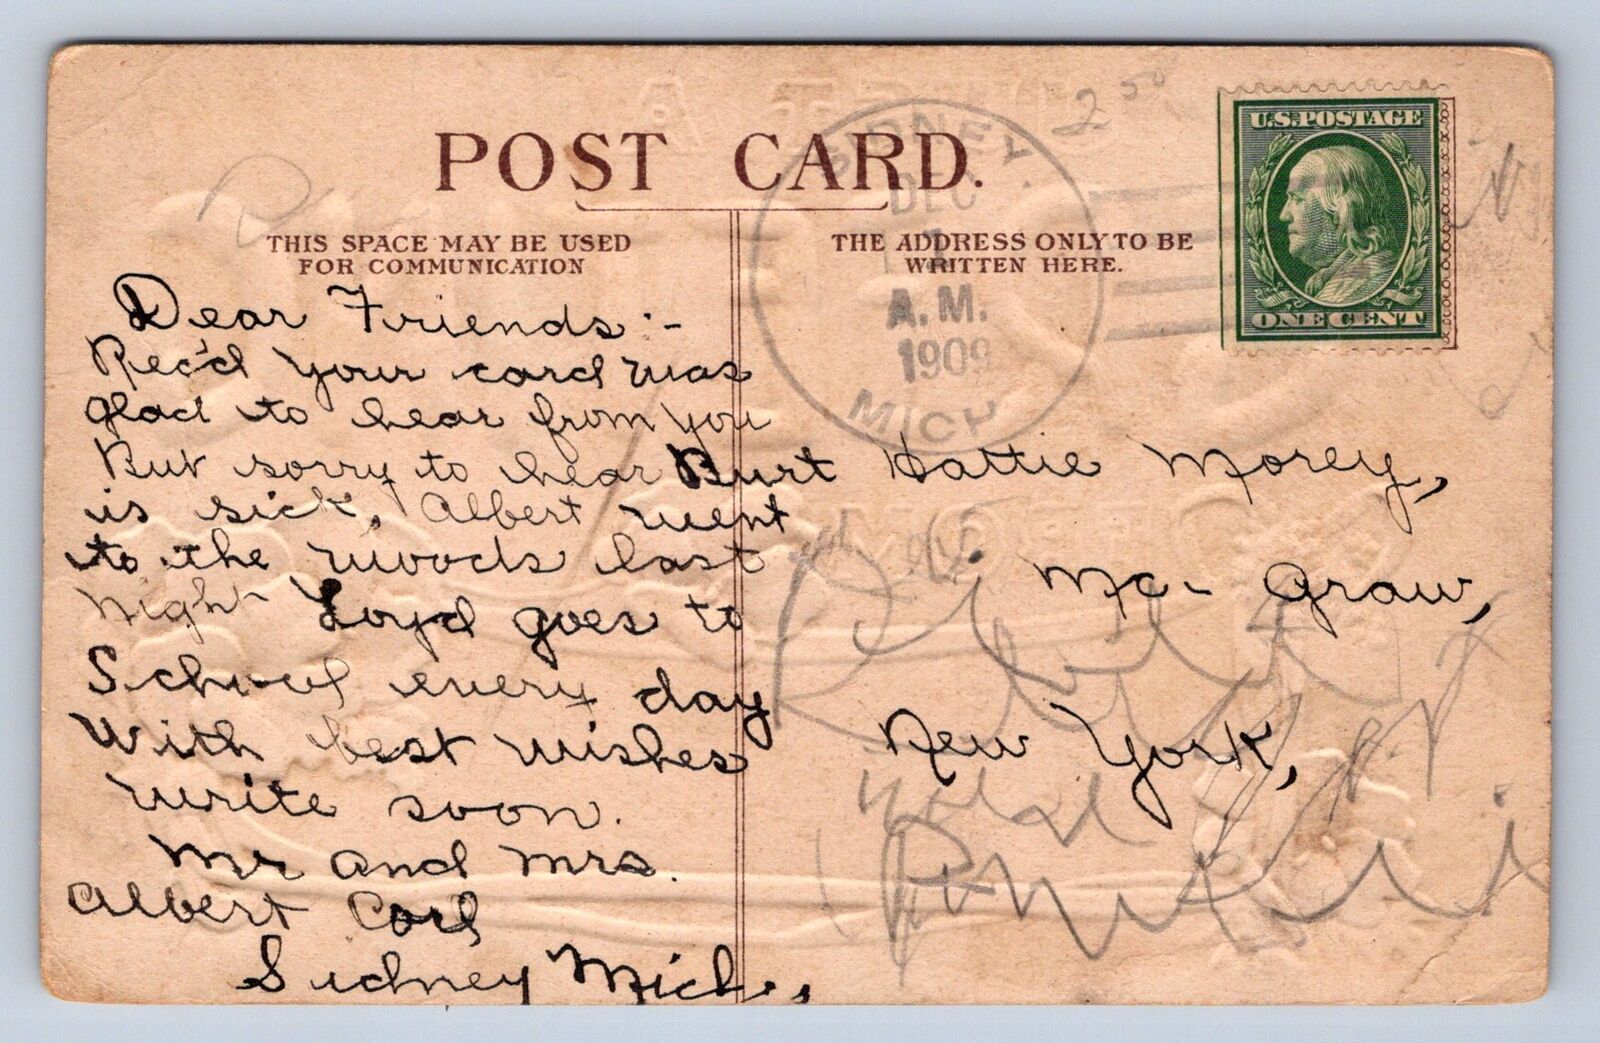 POST CARD.
THIS SPACE MAY BE USED
FOR COMMUNICATION
THE ADDRESS ONLY TO BE
WRITTEN HERE.
SIDNEY.
DEC
A.M.
1909
MICH.
2 50
U.S. POSTAGE
ONE CENT
Dear Friends :-
Rec'd your card was
glad to hear from you
But sorry to hear Burt
is sick, Albert went
to the woods last
night Loyd goes to
School every day
With best wishes
write soon.
Mr and Mrs.
Albert Corl
Sidney Mich.,
Hattie Morey,
Mc- Graw,
New York,